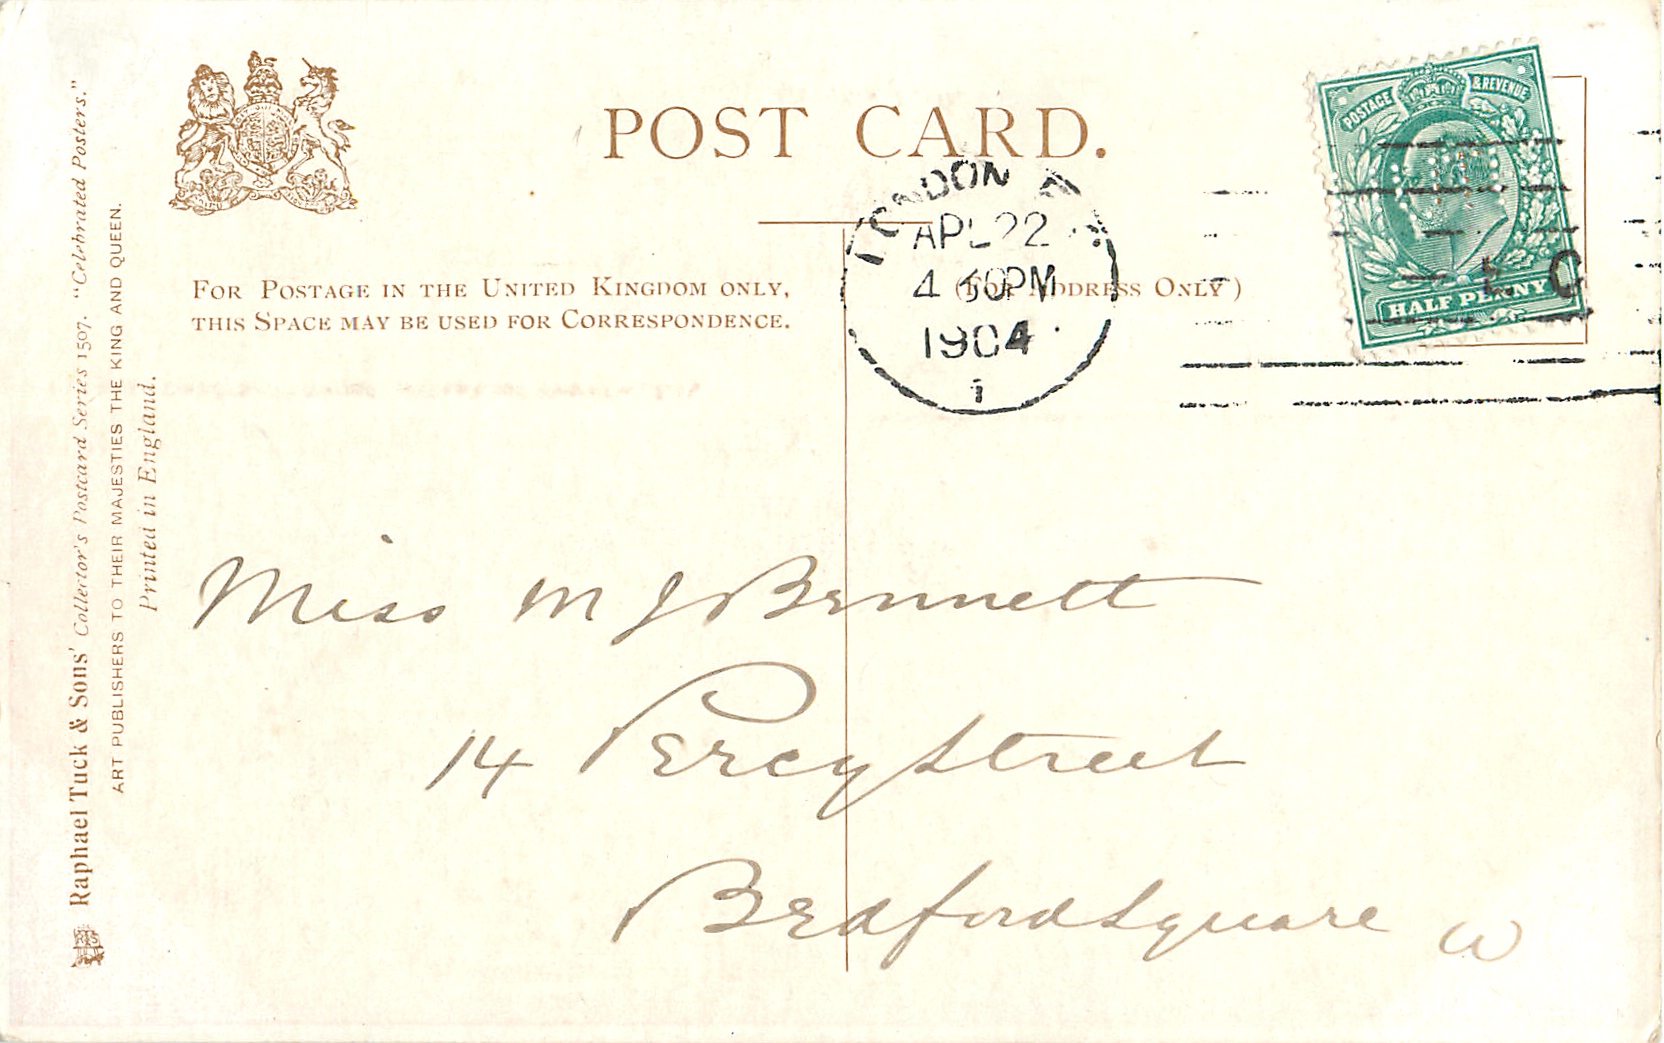 POST CARD.
FOR POSTAGE IN THE UNITED KINGDOM ONLY,
THIS SPACE MAY BE USED FOR CORRESPONDENCE.
(FOR ADDRESS ONLY)
LONDON
APL 22
4 PM
1904
1
POSTAGE & REVENUE
HALF PENNY
Miss M J Bennett
14 Percy Street
Bedford Square W
Raphael Tuck & Sons' Collector's Postcard Series 1507. "Celebrated Posters."
ART PUBLISHERS TO THEIR MAJESTIES THE KING AND QUEEN.
Printed in England.